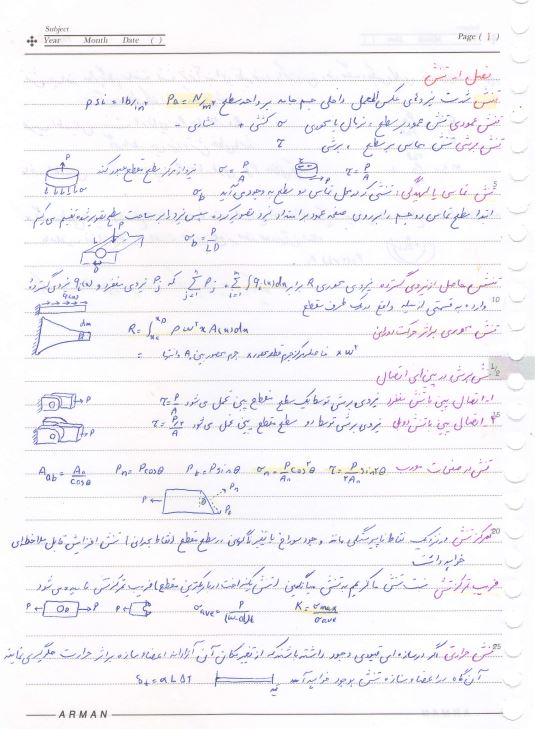 Subject
Year Month Date ( )
Page ( 1 )
فصل ۱: تنش
تنش شدت نیروهای عکس‌العمل داخلی جسم جامد بر واحد سطح Pa = N/m² psi = lb/in²
تنش عمودی تنش عمود بر سطح، نرمال یا محوری σ کششی + فشاری -
تنش برشی تنش مماس بر سطح، برشی τ
P σ = P/A نیرو از مرکز سطح مقطع عبور کند τ = P/A
5
تنش تماسی یا لهیدگی: تنشی که در محل تماس دو سطح به وجود می‌آید σb
ابتدا سطح تماس دو جسم را بر روی صفحه عمود بر امتداد نیرو تصویر کرده سپس نیرو را بر مساحت سطح تصویر شده تقسیم می‌کنیم
σb = P/LD
تنش حاصل از نیروی گسترده نیروی محوری R برابر که Pj نیروی متمرکز و q(x) نیروی گسترده
10
وارده به قسمتی از میله واقع در یک طرف مقطع
q(x)
تنش محوری بر اثر حرکت دورانی R = ∫ ρω²xA(x)dx
dm
xω²
تنش برشی در پین‌های اتصال
۱. اتصال پین با تنش منفرد نیروی برشی توسط یک سطح مقطع پین تحمل می‌شود τ = P/A
P
15
۲. اتصال پین با تنش دوبل نیروی برشی توسط دو سطح مقطع پین تحمل می‌شود
P
تنش در صفحات مورب Aab = An/cosθ Pn = Pcosθ Pt = Psinθ σn = P/An cos²θ τ = P/2An sin2θ
P θ Pn Pt
20
تمرکز تنش در نزدیک نقاط ناپیوستگی مانند وجود سوراخ یا تغییر ناگهانی در سطح مقطع (نقاط بحرانی) تنش افزایش قابل ملاحظه‌ای
خواهد داشت
ضریب تمرکز تنش نسبت تنش ماکزیمم به تنش میانگین (تنش یکنواخت در باریکترین مقطع) ضریب تمرکز تنش نامیده می‌شود
P P P σave = P/(w-d)t K = σmax/σave
25
تنش حرارتی اگر در سازه‌ای قیودی وجود داشته باشند که از تغییر مکان آزادانه اعضاء سازه بر اثر حرارت جلوگیری نمایند
آن‌گاه در اعضاء سازه تنش بوجود خواهد آمد δt = αLΔT
ARMAN